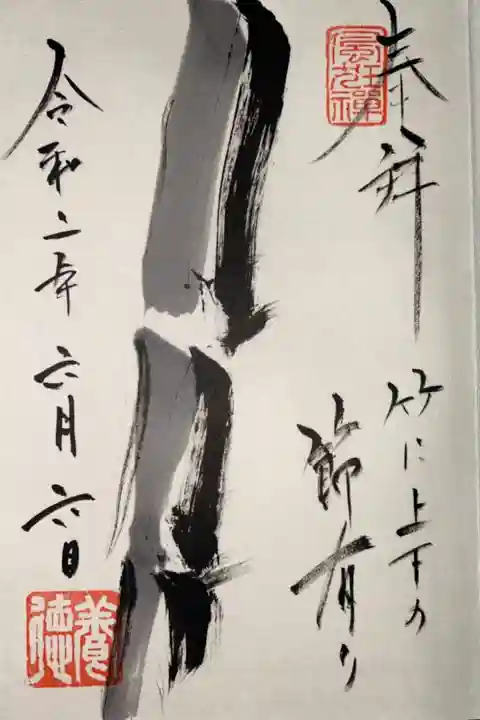 奉拝
竹に上下の
節有り
令和二年六月六日
養徳